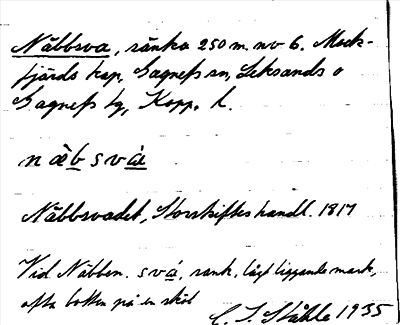 Näbbsva, sänka 250 m. nv 6. Mock-
fjärds kap, Gagnefs sn, Leksands o
Gagnefs tg, Kopp. l.
næbsvá
Näbbsvadet, Storskifteshandl. 1817
Vid Näbben. svá, sank, lågt liggande mark,
ofta botten på en
C. I. Ståhle 1935